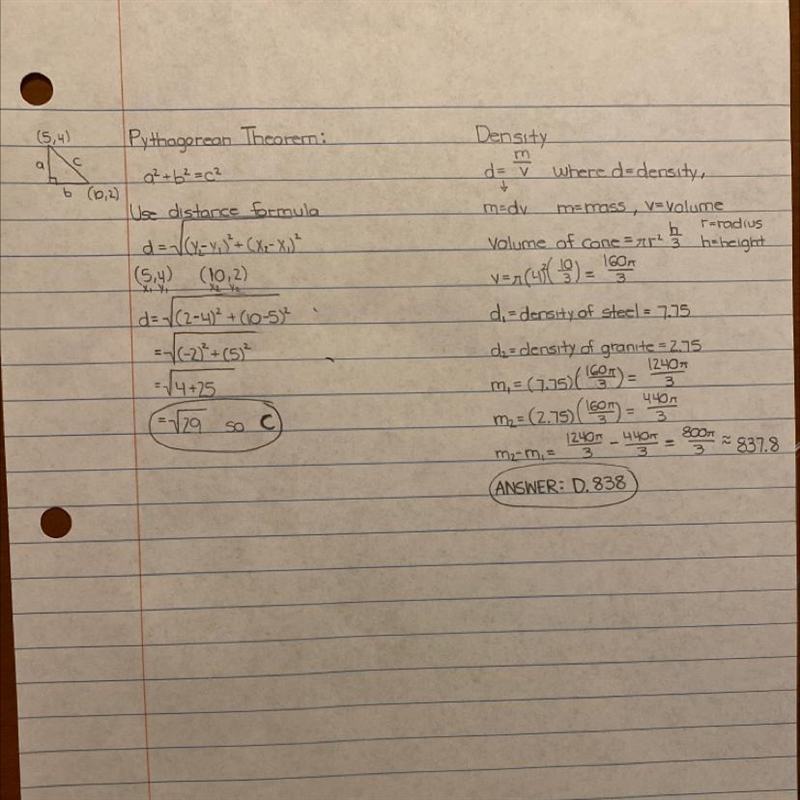 (5,4)
a
c
b
(10,2)
Pythagorean Theorem:
a²+b²=c²
Use distance formula
d=√(y₂-y₁)²+(x₂-x₁)²
(5,4) (10,2)
x₁ y₁ x₂ y₂
d=√(2-4)²+(10-5)²
=√(-2)²+(5)²
=√4+25
=√29 so C
Density
d=m/v where d=density,
m=dv m=mass, v=volume
volume of cone=πr² h/3 r=radius
h=height
v=π(4)²(10/3)=160π/3
d₁=density of steel=7.75
d₂=density of granite=2.75
m₁=(7.75)(160π/3)=1240π/3
m₂=(2.75)(160π/3)=440π/3
m₂-m₁=1240π/3-440π/3=800π/3≈837.8
ANSWER: D. 838